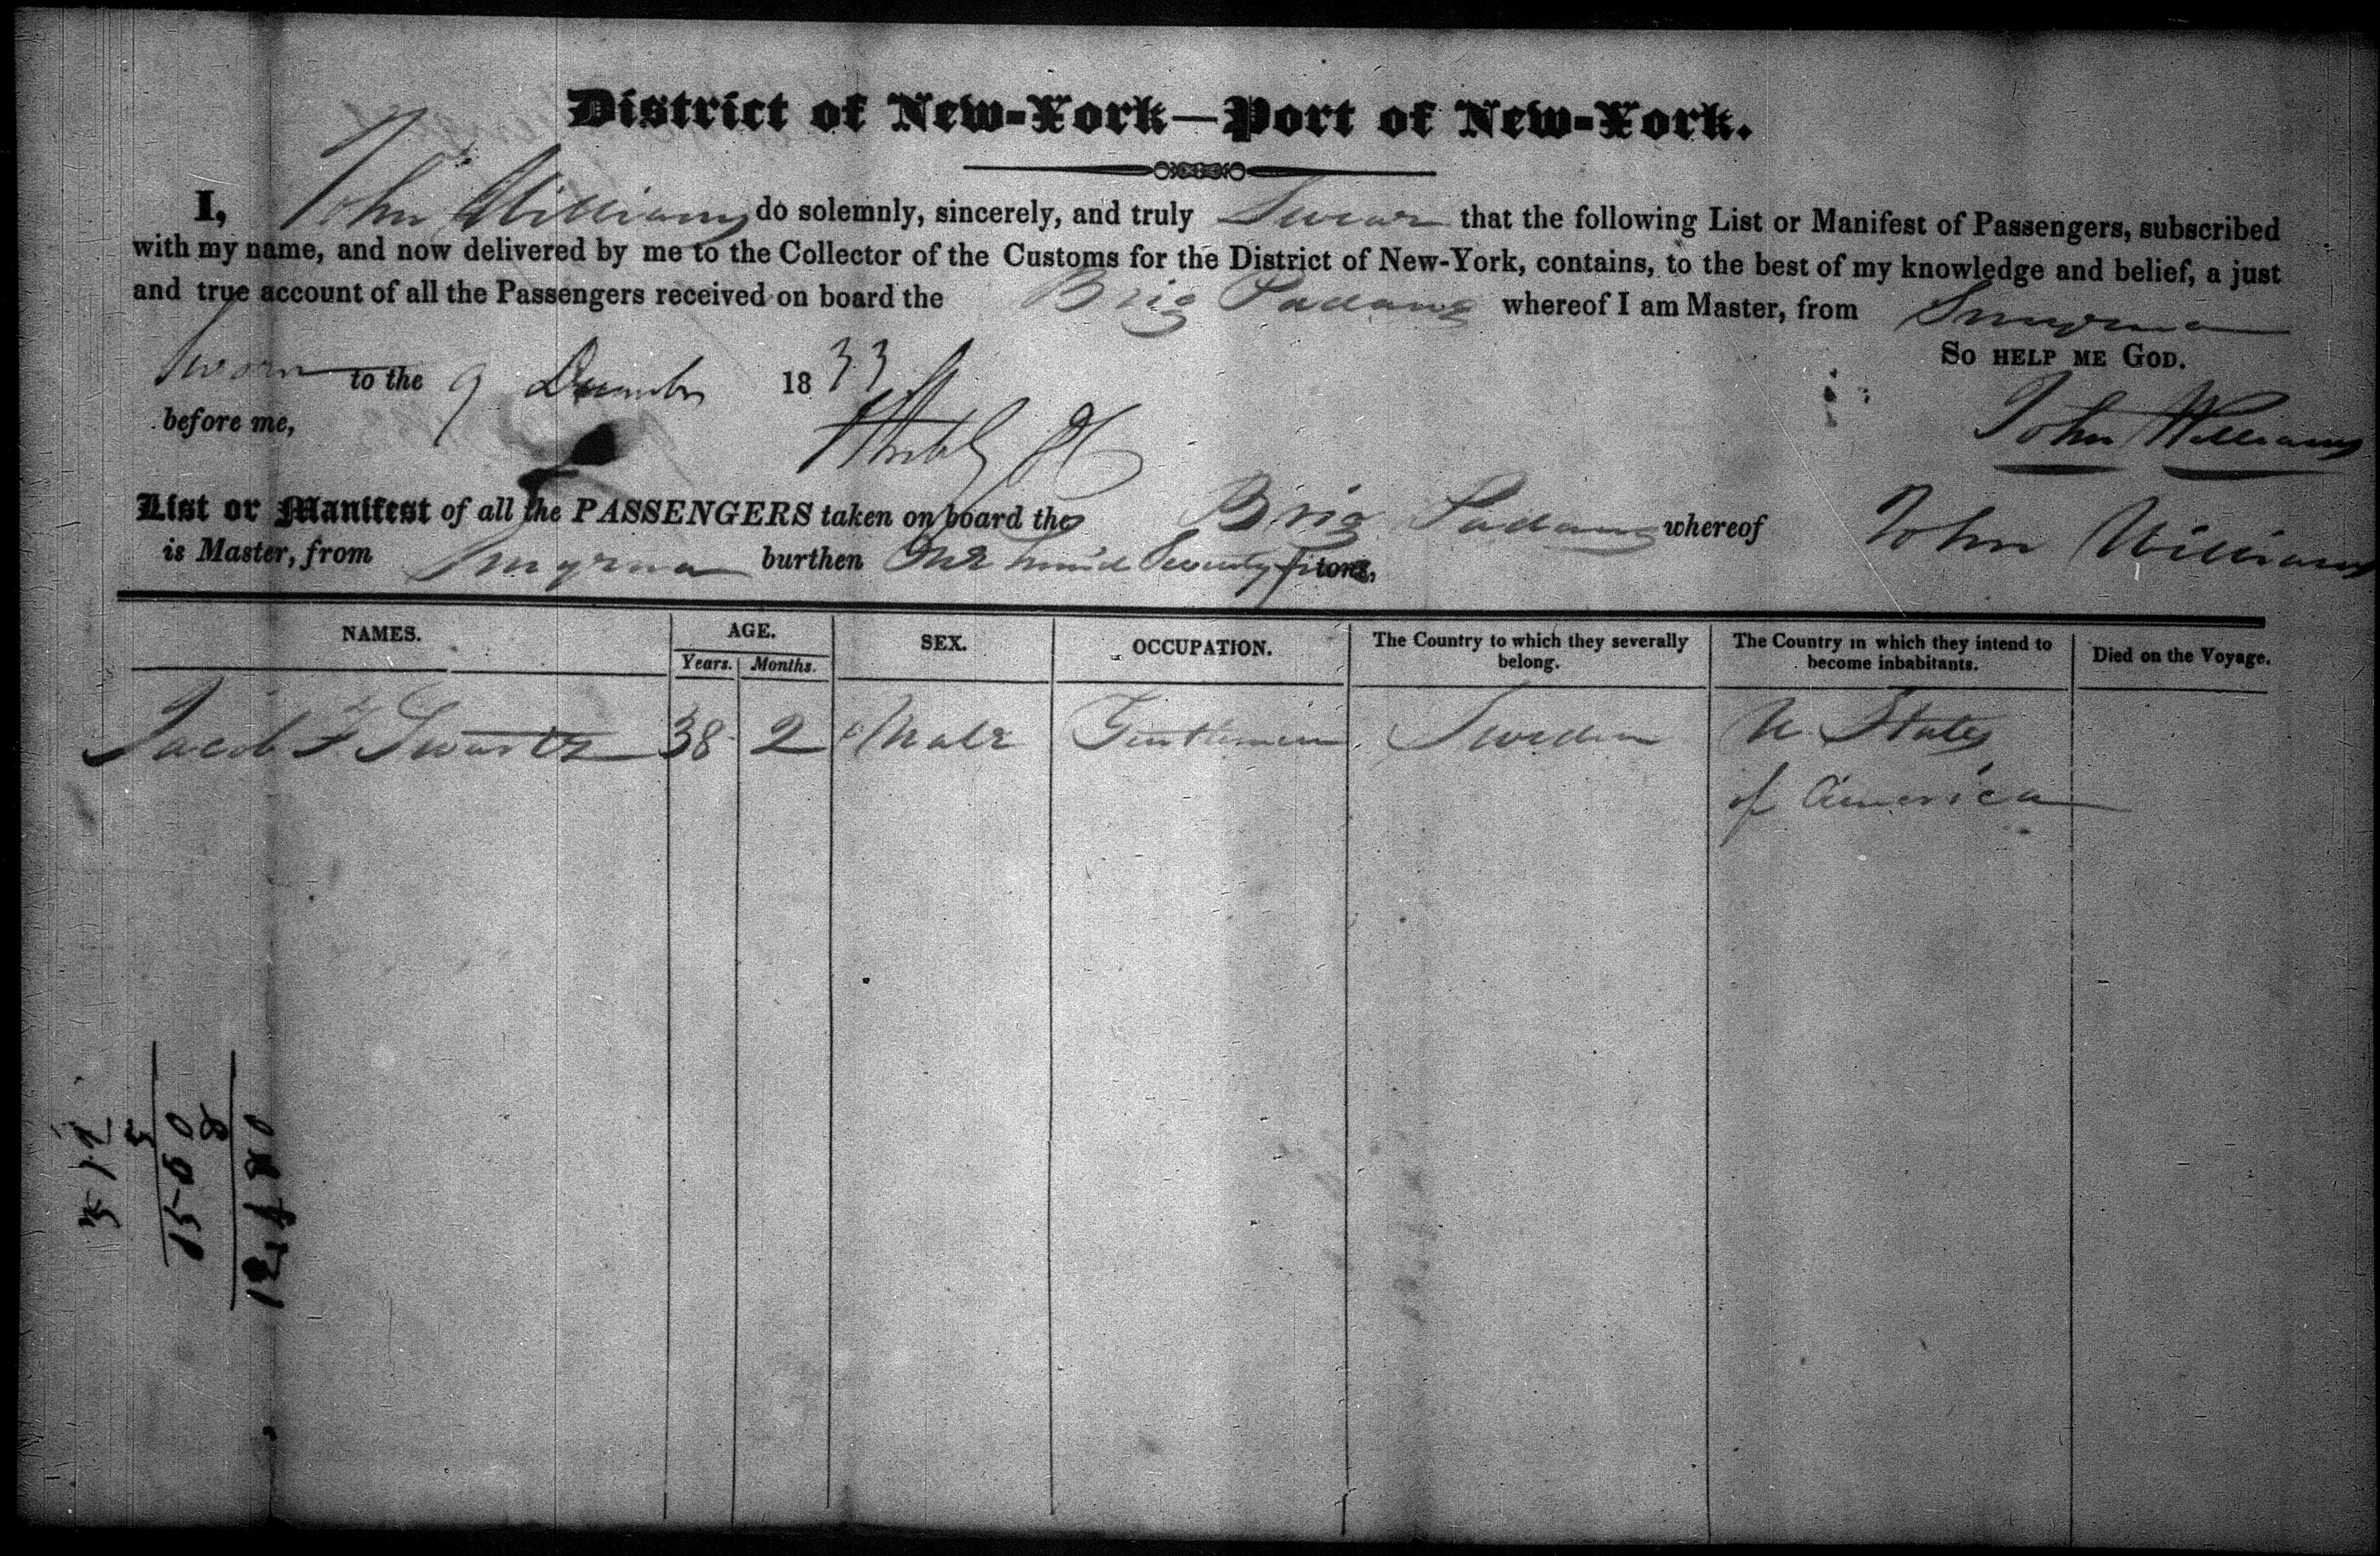 District of New-York—Port of New-York.
I, John Williams do solemnly, sincerely, and truly Swear that the following List or Manifest of Passengers, subscribed
with my name, and now delivered by me to the Collector of the Customs for the District of New-York, contains, to the best of my knowledge and belief, a just
and true account of all the Passengers received on board the Brig Padang whereof I am Master, from Smyrna
So HELP ME GOD.
Sworn to the 9 December 1833
before me,
John Williams
List or Manifest of all the PASSENGERS taken on board the Brig Padang whereof John Williams
is Master, from Smyrna burthen One Seventy tons,
NAMES. AGE. SEX. OCCUPATION. The Country to which they severally belong. The Country in which they intend to become inhabitants. Died on the Voyage.
Years. Months.
Jacob F Swartz 38 2 Male Gentlemen Sweden U. States
of America